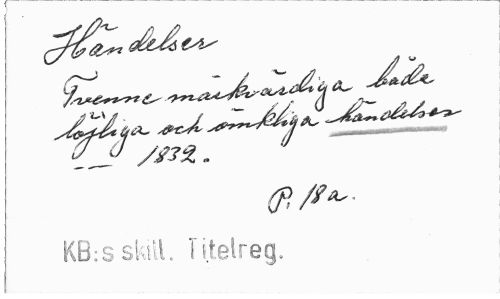 Händelser
Tvenne märkvärdiga både
löjliga och ömkliga händelser
— — 1832.
P. 18a.
KB:s skill. Titelreg.